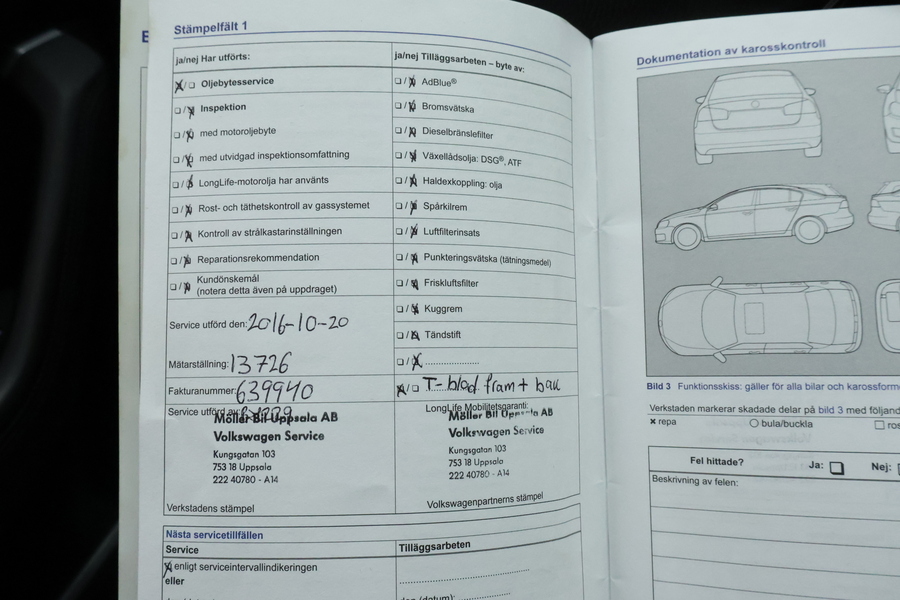 Stämpelfält 1
ja/nej Har utförts:
Oljebytesservice
Inspektion
med motoroljebyte
med utvidgad inspektionsomfattning
LongLife-motorolja har använts
Rost- och täthetskontroll av gassystemet
Kontroll av strålkastarinställningen
Reparationsrekommendation
Kundönskemål
(notera detta även på uppdraget)
Service utförd den: 2016-10-20
Mätarställning: 13726
Fakturanummer: 639940
Service utförd av:
Möller Bil Uppsala AB
Volkswagen Service
Kungsgatan 103
753 18 Uppsala
222 40780 - A14
Verkstadens stämpel
ja/nej Tilläggsarbeten – byte av:
AdBlue®
Bromsvätska
Dieselbränslefilter
Växellådsolja: DSG®, ATF
Haldexkoppling: olja
Spårkilrem
Luftfilterinsats
Punkteringsvätska (tätningsmedel)
Friskluftsfilter
Kuggrem
Tändstift
T-blad fram + bak
LongLife Mobilitetsgaranti:
Möller Bil Uppsala AB
Volkswagen Service
Kungsgatan 103
753 18 Uppsala
222 40780 - A14
Volkswagenpartnerns stämpel
Nästa servicetillfällen
Service
Tilläggsarbeten
enligt serviceintervallindikeringen
eller
den (datum):
Dokumentation av karosskontroll
Bild 3 Funktionsskiss: gäller för alla bilar och karossform
Verkstaden markerar skadade delar på bild 3 med följand
× repa
○ bula/buckla
□ ros
Fel hittade?
Ja: □
Nej:
Beskrivning av felen: